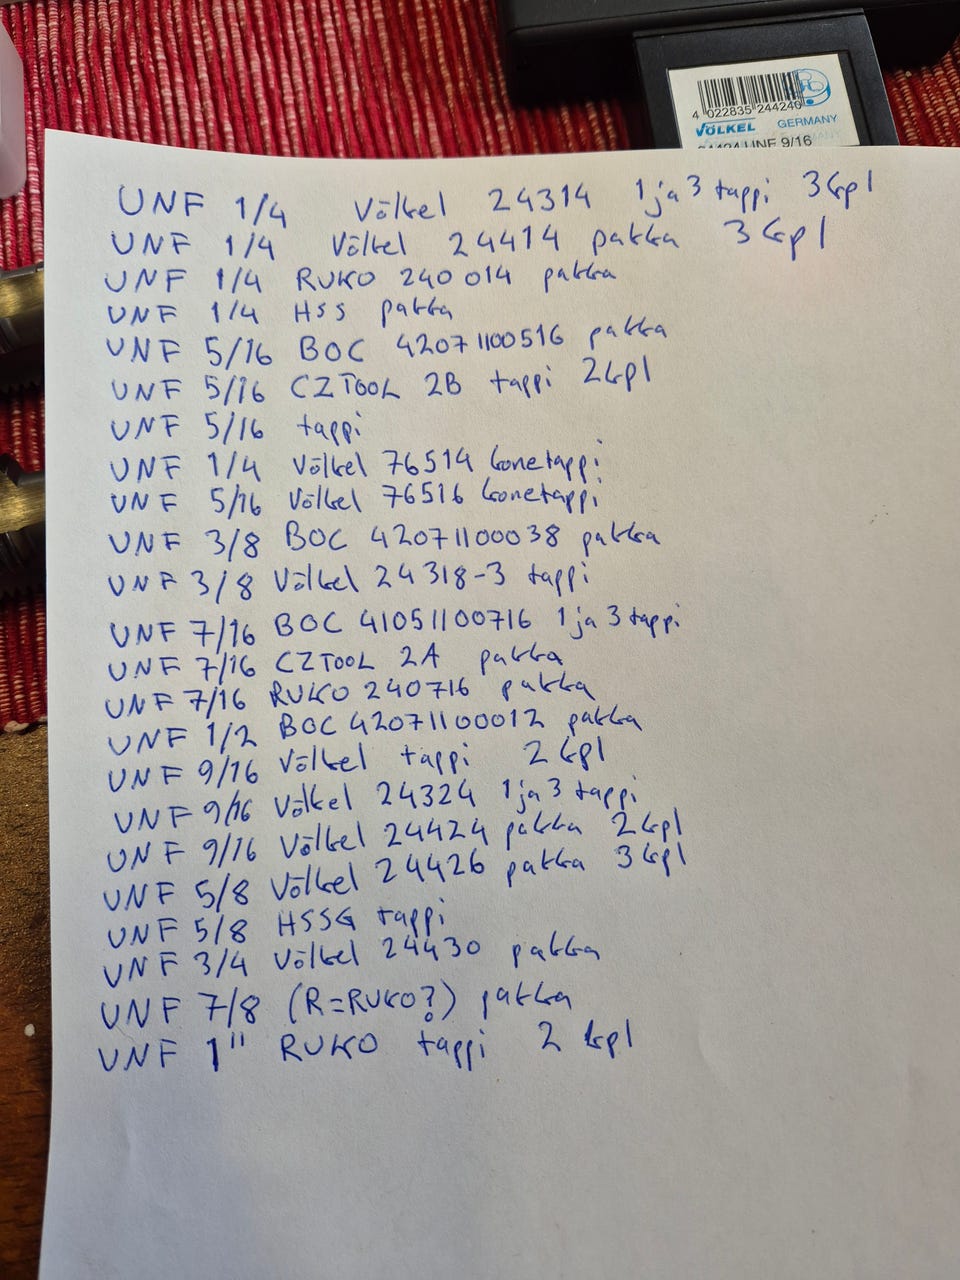 4 022835 244240
VÖLKEL GERMANY
UNF 9/16
UNF 1/4 Völkel 24314 1 ja 3 tappi 3 kpl
UNF 1/4 Völkel 24414 pakka 3 kpl
UNF 1/4 RUKO 240014 pakka
UNF 1/4 HSS pakka
UNF 5/16 BOC 42071100516 pakka
UNF 5/16 CZTOOL 2B tappi 2 kpl
UNF 5/16 tappi
UNF 1/4 Völkel 76514 konetappi
UNF 5/16 Völkel 76516 konetappi
UNF 3/8 BOC 42071100038 pakka
UNF 3/8 Völkel 24318-3 tappi
UNF 7/16 BOC 41051100716 1 ja 3 tappi
UNF 7/16 CZTOOL 2A pakka
UNF 7/16 RUKO 240716 pakka
UNF 1/2 BOC 42071100012 pakka
UNF 9/16 Völkel tappi 2 kpl
UNF 9/16 Völkel 24324 1 ja 3 tappi
UNF 9/16 Völkel 24424 pakka 2 kpl
UNF 5/8 Völkel 24426 pakka 3 kpl
UNF 5/8 HSSG tappi
UNF 3/4 Völkel 24430 pakka
UNF 7/8 (R=RUKO?) pakka
UNF 1" RUKO tappi 2 kpl